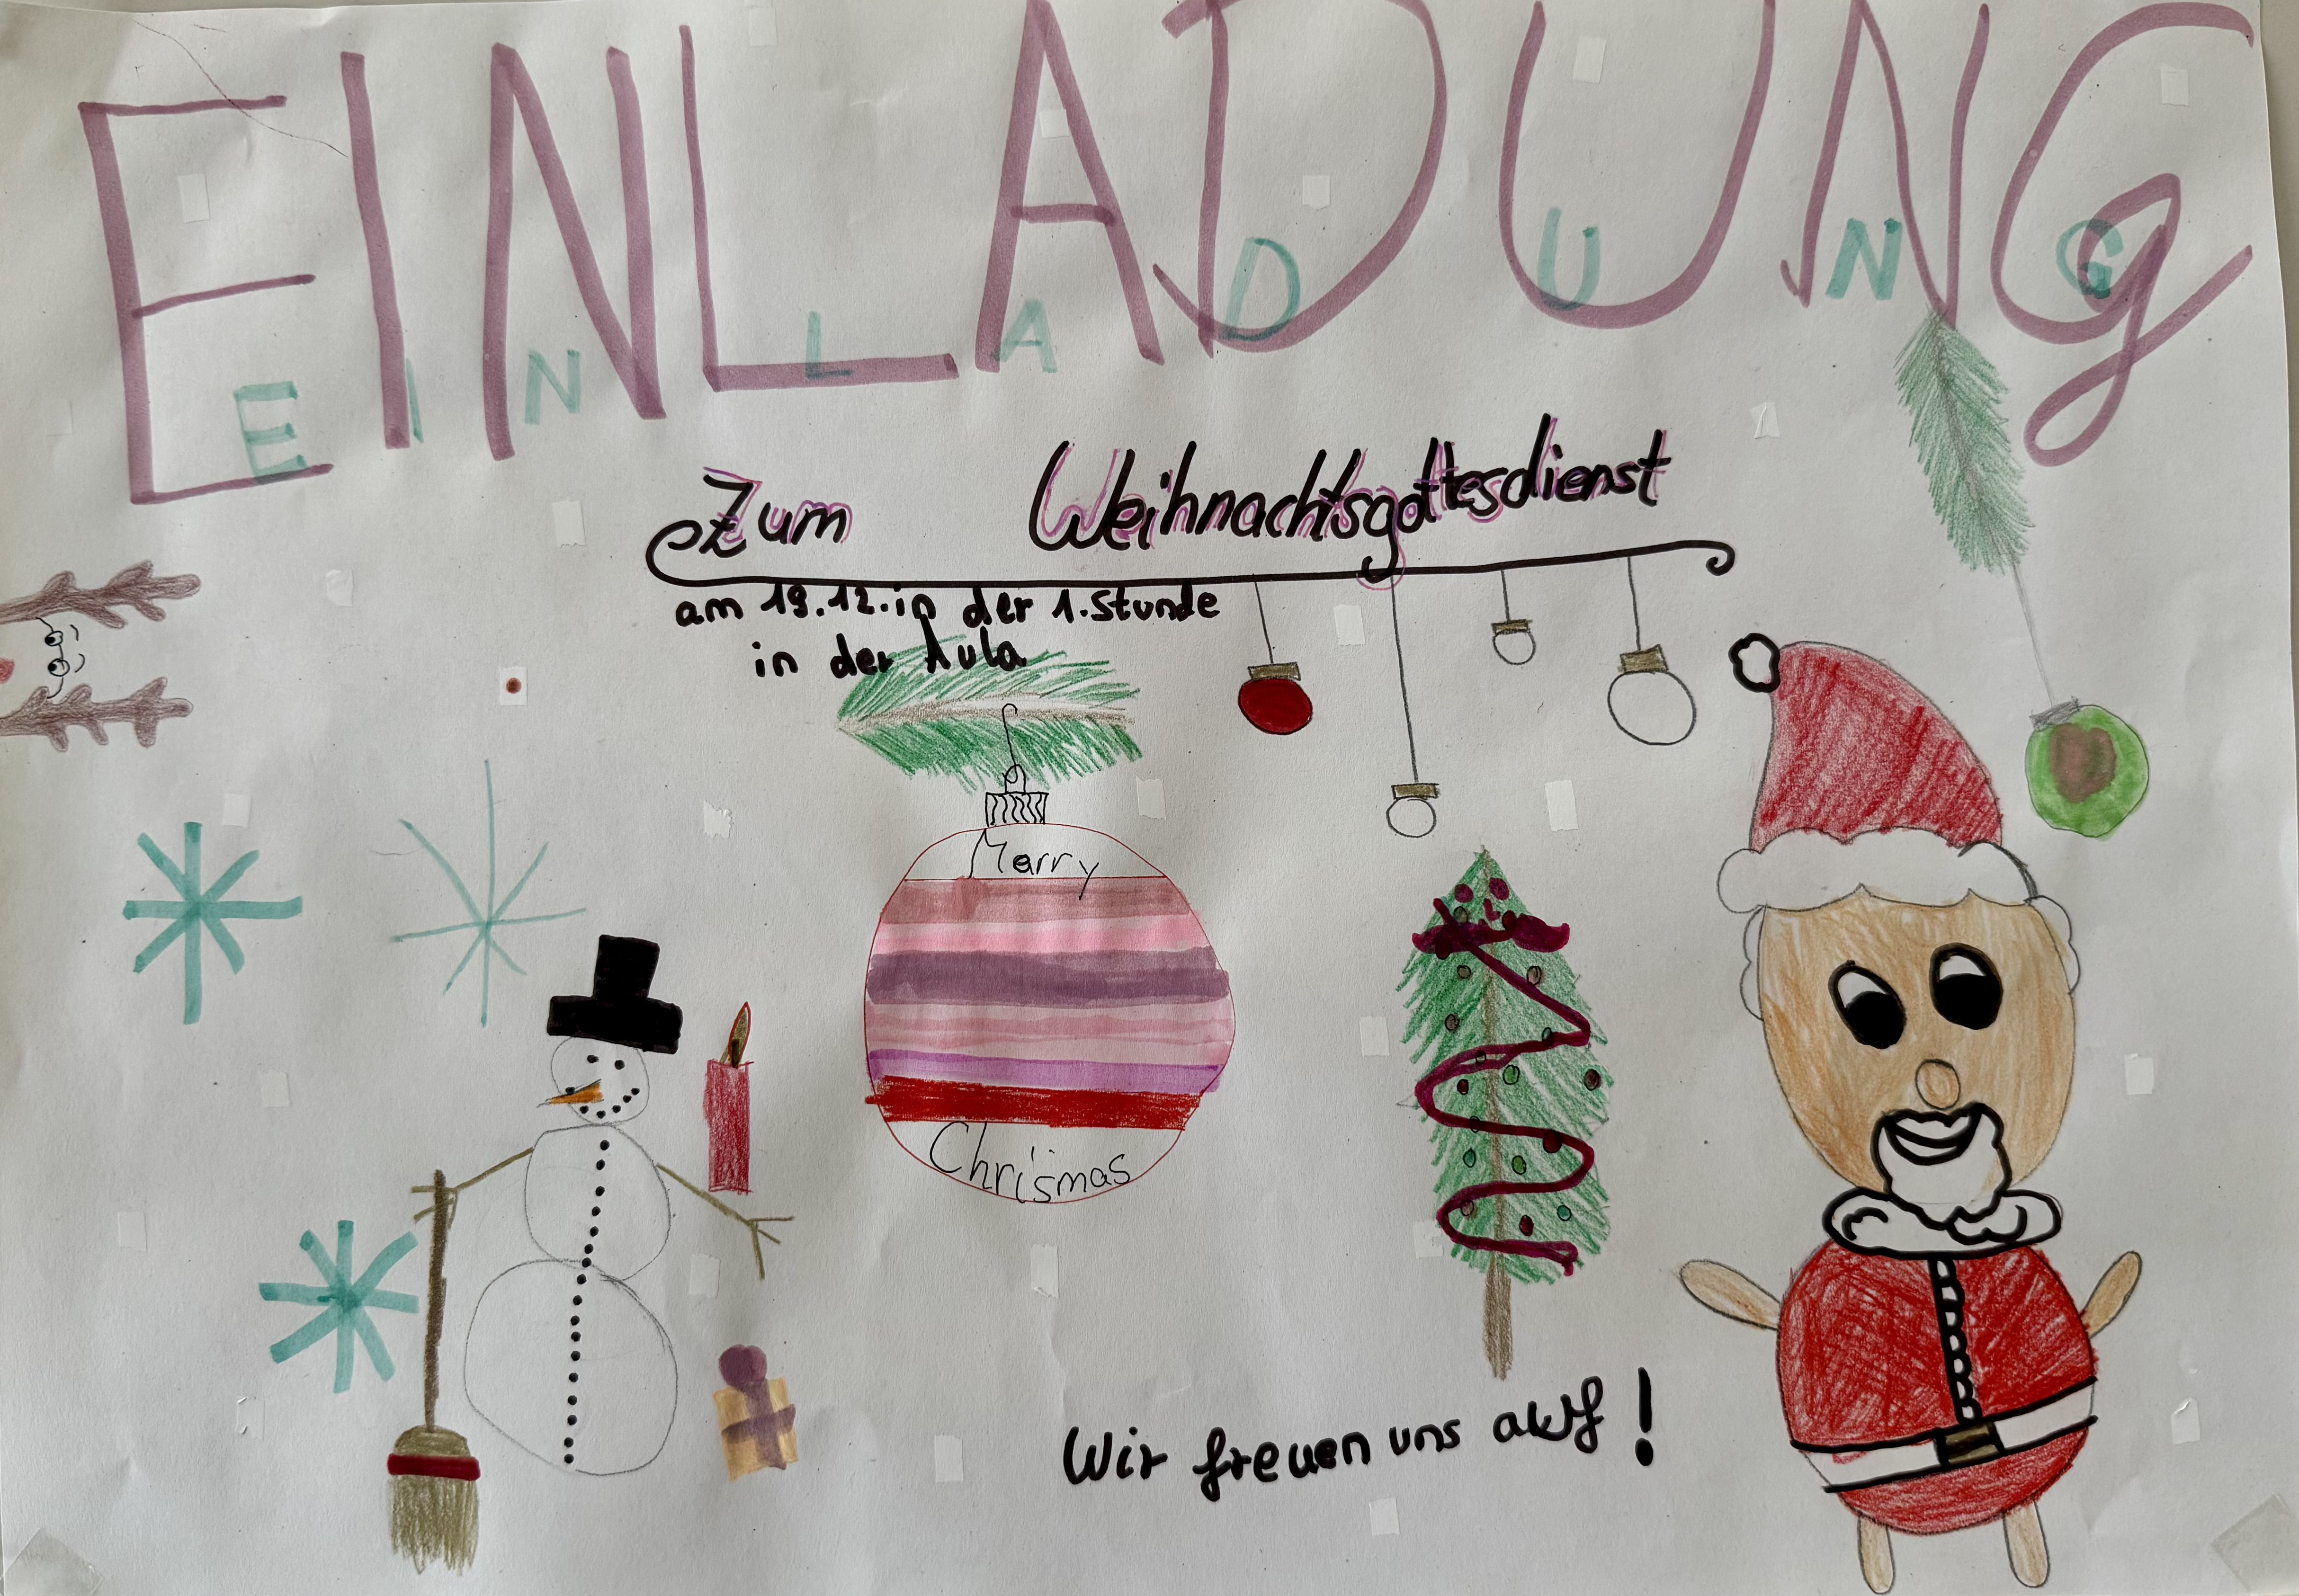 EINLADUNG
EINLADUNG
Zum Weihnachtsgottesdienst
am 19.12. in der 1. Stunde
in der Aula
Marry
Chrismas
Wir freuen uns auf !